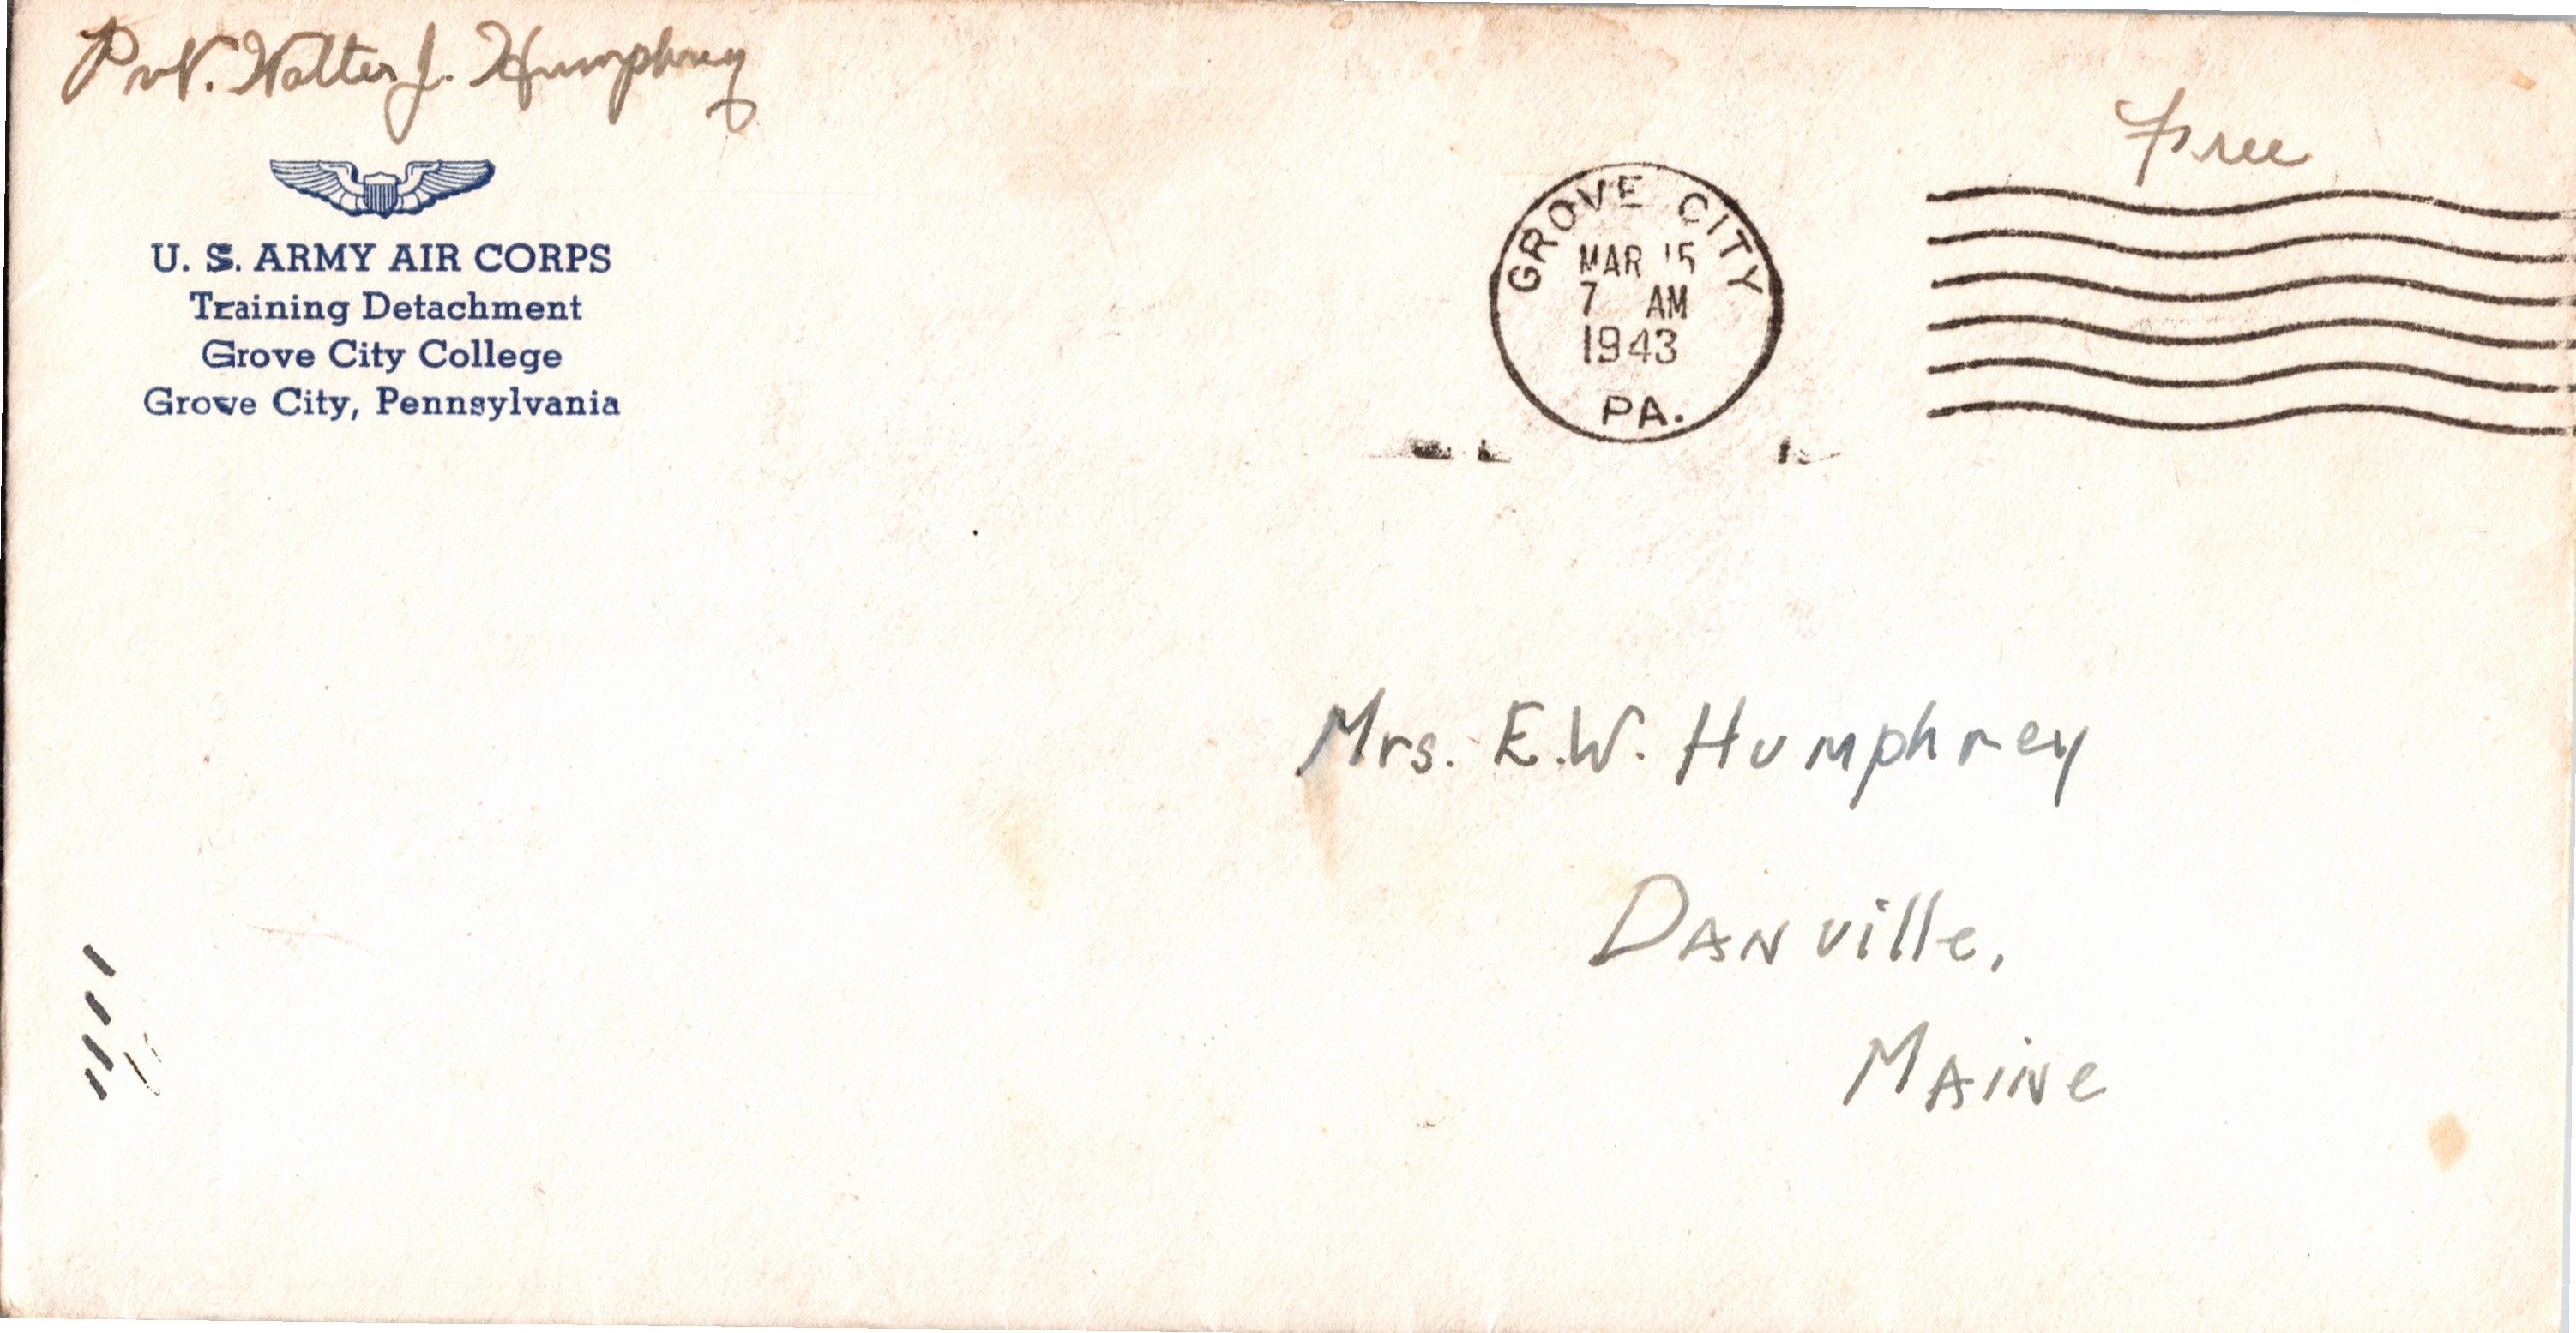 Pvt. Walter J. Humphrey
U. S. ARMY AIR CORPS
Training Detachment
Grove City College
Grove City, Pennsylvania
GROVE CITY
MAR 15
7 AM
1943
PA.
Free
Mrs. E.W. Humphrey
Danville,
Maine